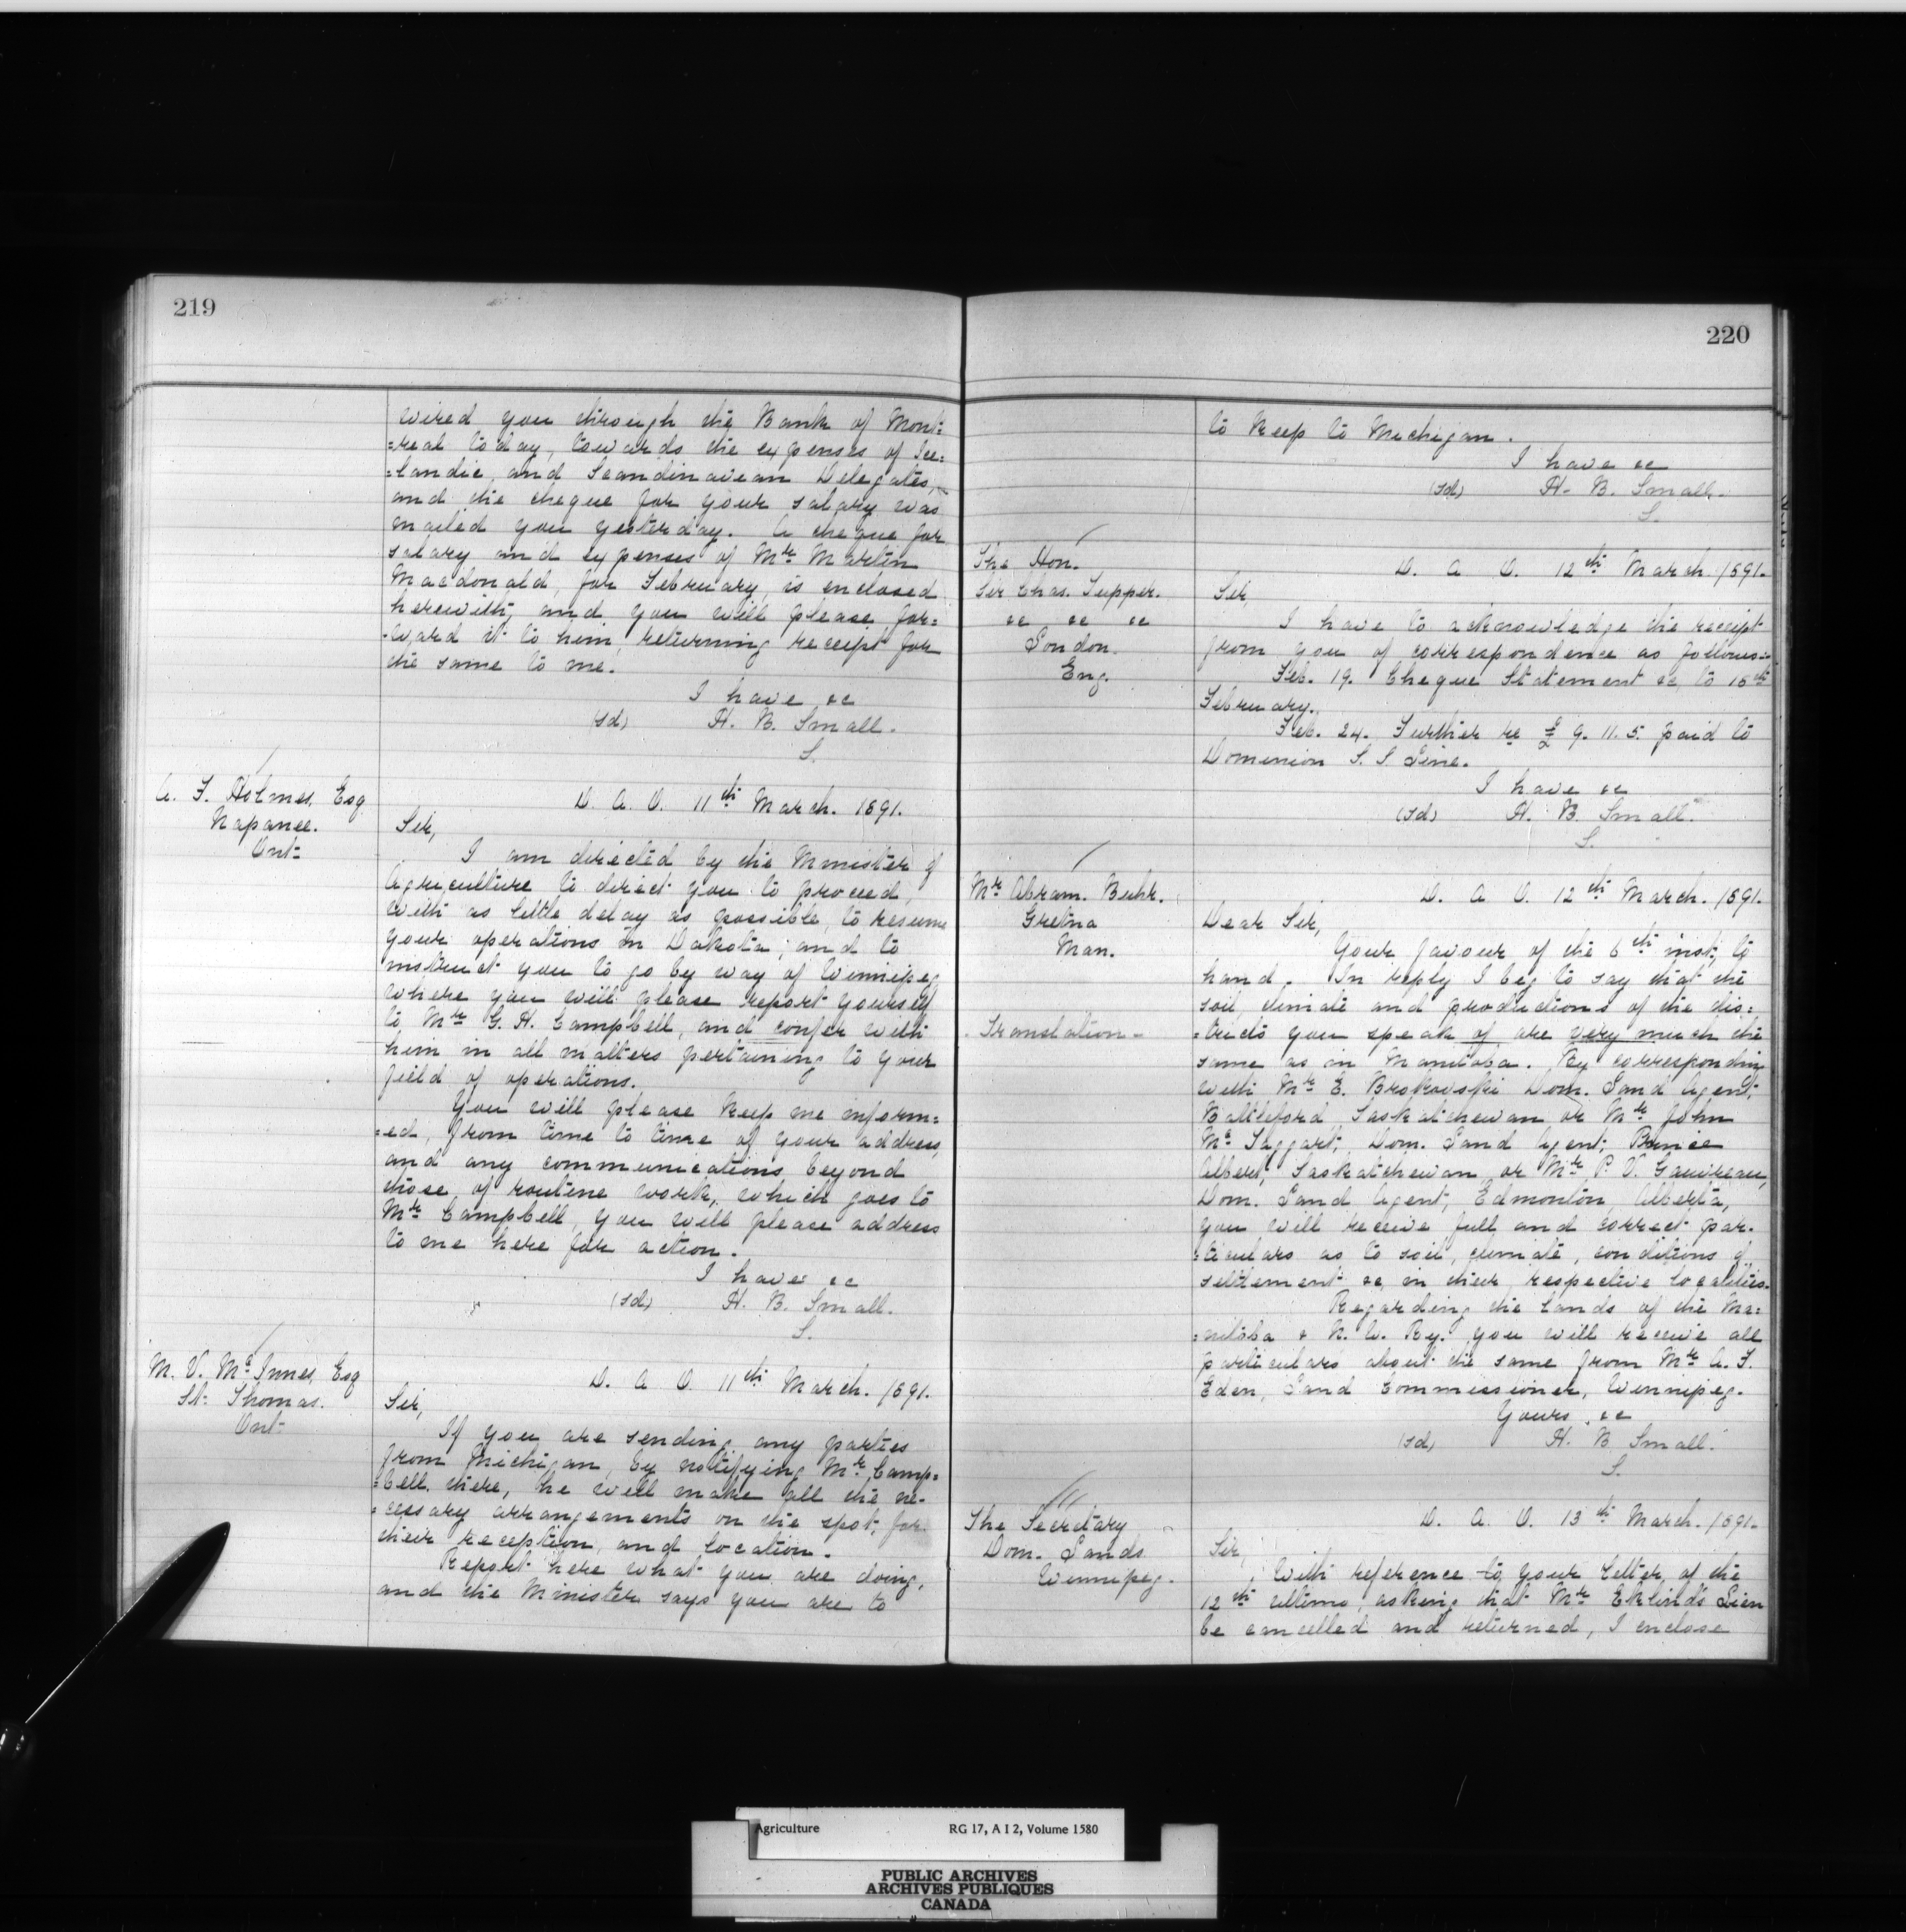 219
wired you through the Bank of Mont=
=real to day, towards the expenses of Ice=
=landic, and Scandinavean Delegates,
and the cheque for your salary was
mailed you yesterday. A cheque for
salary and expenses of Mr Martin
Macdonald, for February, is enclosed
herewith, and you will please for=
-ward it to him, returning receipt for
the same to me.
I have &c
(sd) H. B. Small.
S.
A. F. Holmes, Esq
Napanee.
Ont-
D. A. O. 11th March. 1891.
Sir,
I am directed by the Minister of
Agriculture to direct you to proceed,
with as little delay as possible, to resume
your operations in Dakota; and to
instruct you to go by way of Winnipeg,
where you will please report yourself
to, Mr G. H. Campbell, and confer with
him in all matters pertaining to your
field of operations.
You will please keep me inform=
=ed, from time to time of your address,
and any communications beyond
those of routine work, which goes to
Mr Campbell, you will please address
to me here for action.
I have &c
(sd) H. B. Small.
S.
M. V. Mc Innes, Esq
St. Thomas.
Ont-
D. A. O. 11th March. 1891.
Sir,
If you are sending any parties
from Michigan, by notifying Mr Camp=
=bell there, he will make all the ne-
-cessary arrangements on the spot, for
their reception, and location.
Report here what you are doing,
and the Minister says you are to
220
to keep to Michigan.
I have &c
(sd) H. B. Small.
S.
The Hon.
Sir Chas. Tupper.
&c &c &c
London.
Eng.
D. A. O. 12th March. 1891.
Sir,
I have to acknowledge the receipt
from you of correspondence as follows:-
Feb. 19. Cheque Statement &c, to 15th
February.
Feb. 24. Further re £ 9. 11. 5. paid to
Dominion S. S. Line.
I have &c
(sd) H. B. Small.
S.
Mr Abram. Buhr.
Gretna
Man.
D. A. O. 12th March. 1891.
Dear Sir,
Your favour of the 6th inst, to
hand. In reply I beg to say that the
soil, climate and productions of the dis=
Translation-
=tricts you speak of are very much the
same as in Manitoba. By corresponding
with Mr E. Brokovski Dom. Land Agent,
Battleford Saskatchewan or Mr John
Mc Taggart, Dom. Land Agent, Prince
Albert, Saskatchewan, or Mr P. V. Gauvreau,
Dom. Land Agent, Edmonton, Alberta,
you will receive full and correct par-
=ticulars as to soil, climate, conditions of
settlement &c, in their respective localities.
Regarding the lands of the Ma=
=nitoba & N. W. Ry. you will receive all
particulars about the same from Mr A. F.
Eden, Land Commissioner, Winnipeg.
Yours, &c
(sd) H. B. Small.
S.
The Secretary
Dom. Lands
Winnipeg.
D. A. O. 13th March. 1891.
Sir,
With reference to your letter, of the
12th ultimo, asking that Mr Eklind's Lien
be cancelled and returned, I enclose
Agriculture RG 17, A I 2, Volume 1580
PUBLIC ARCHIVES
ARCHIVES PUBLIQUES
CANADA